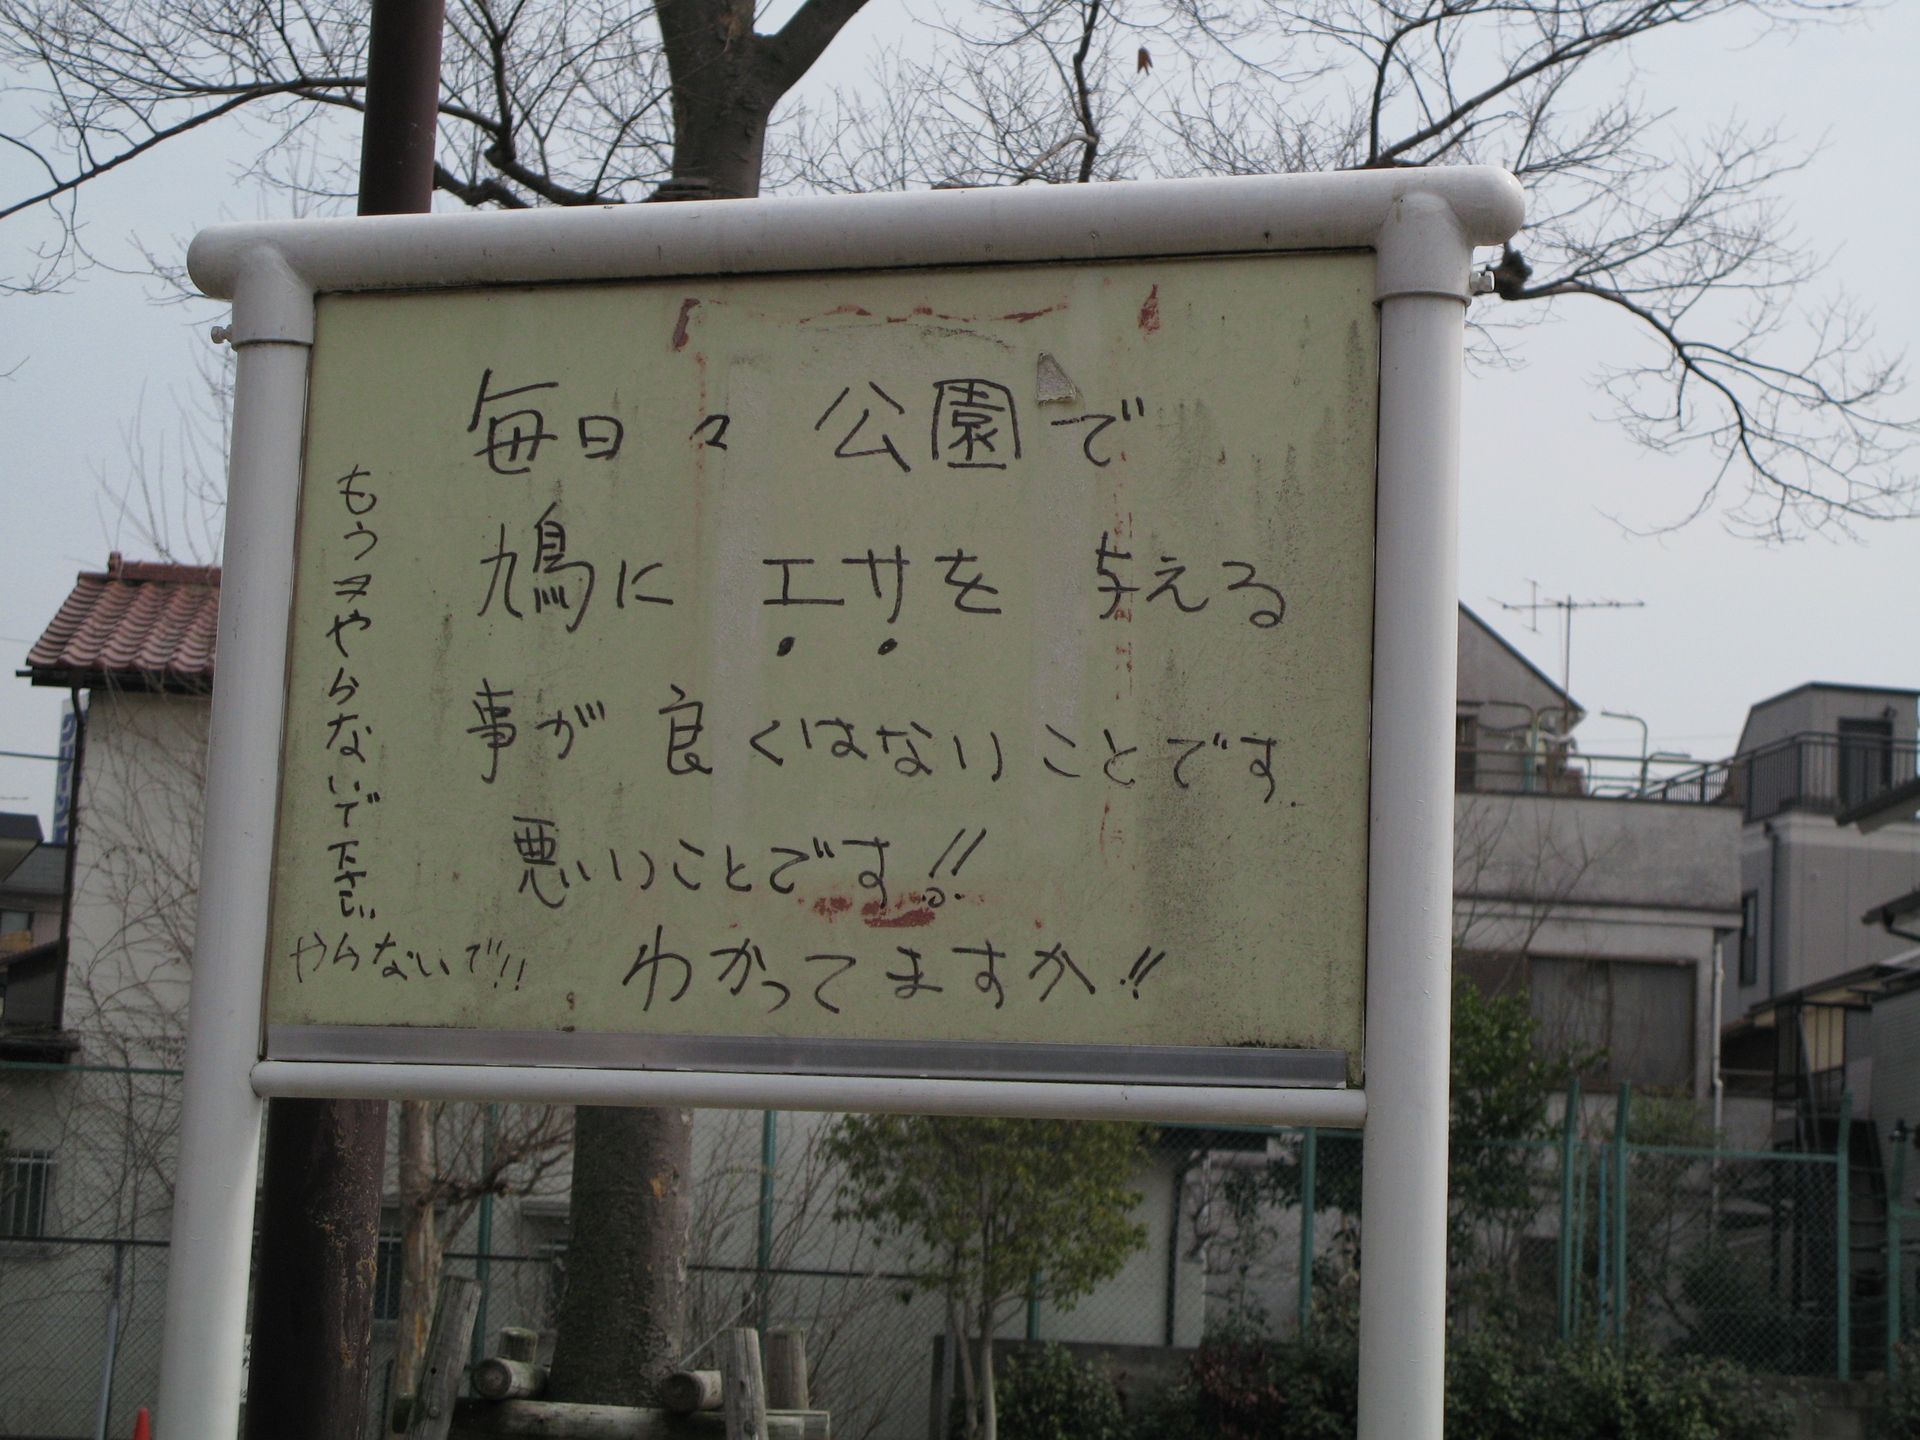 毎日々 公園で
鳩に エサを 与える
事が 良くはないことです.
悪いいことです!!
わかってますか!!
もうヌやらないで下さい
やらないで!!